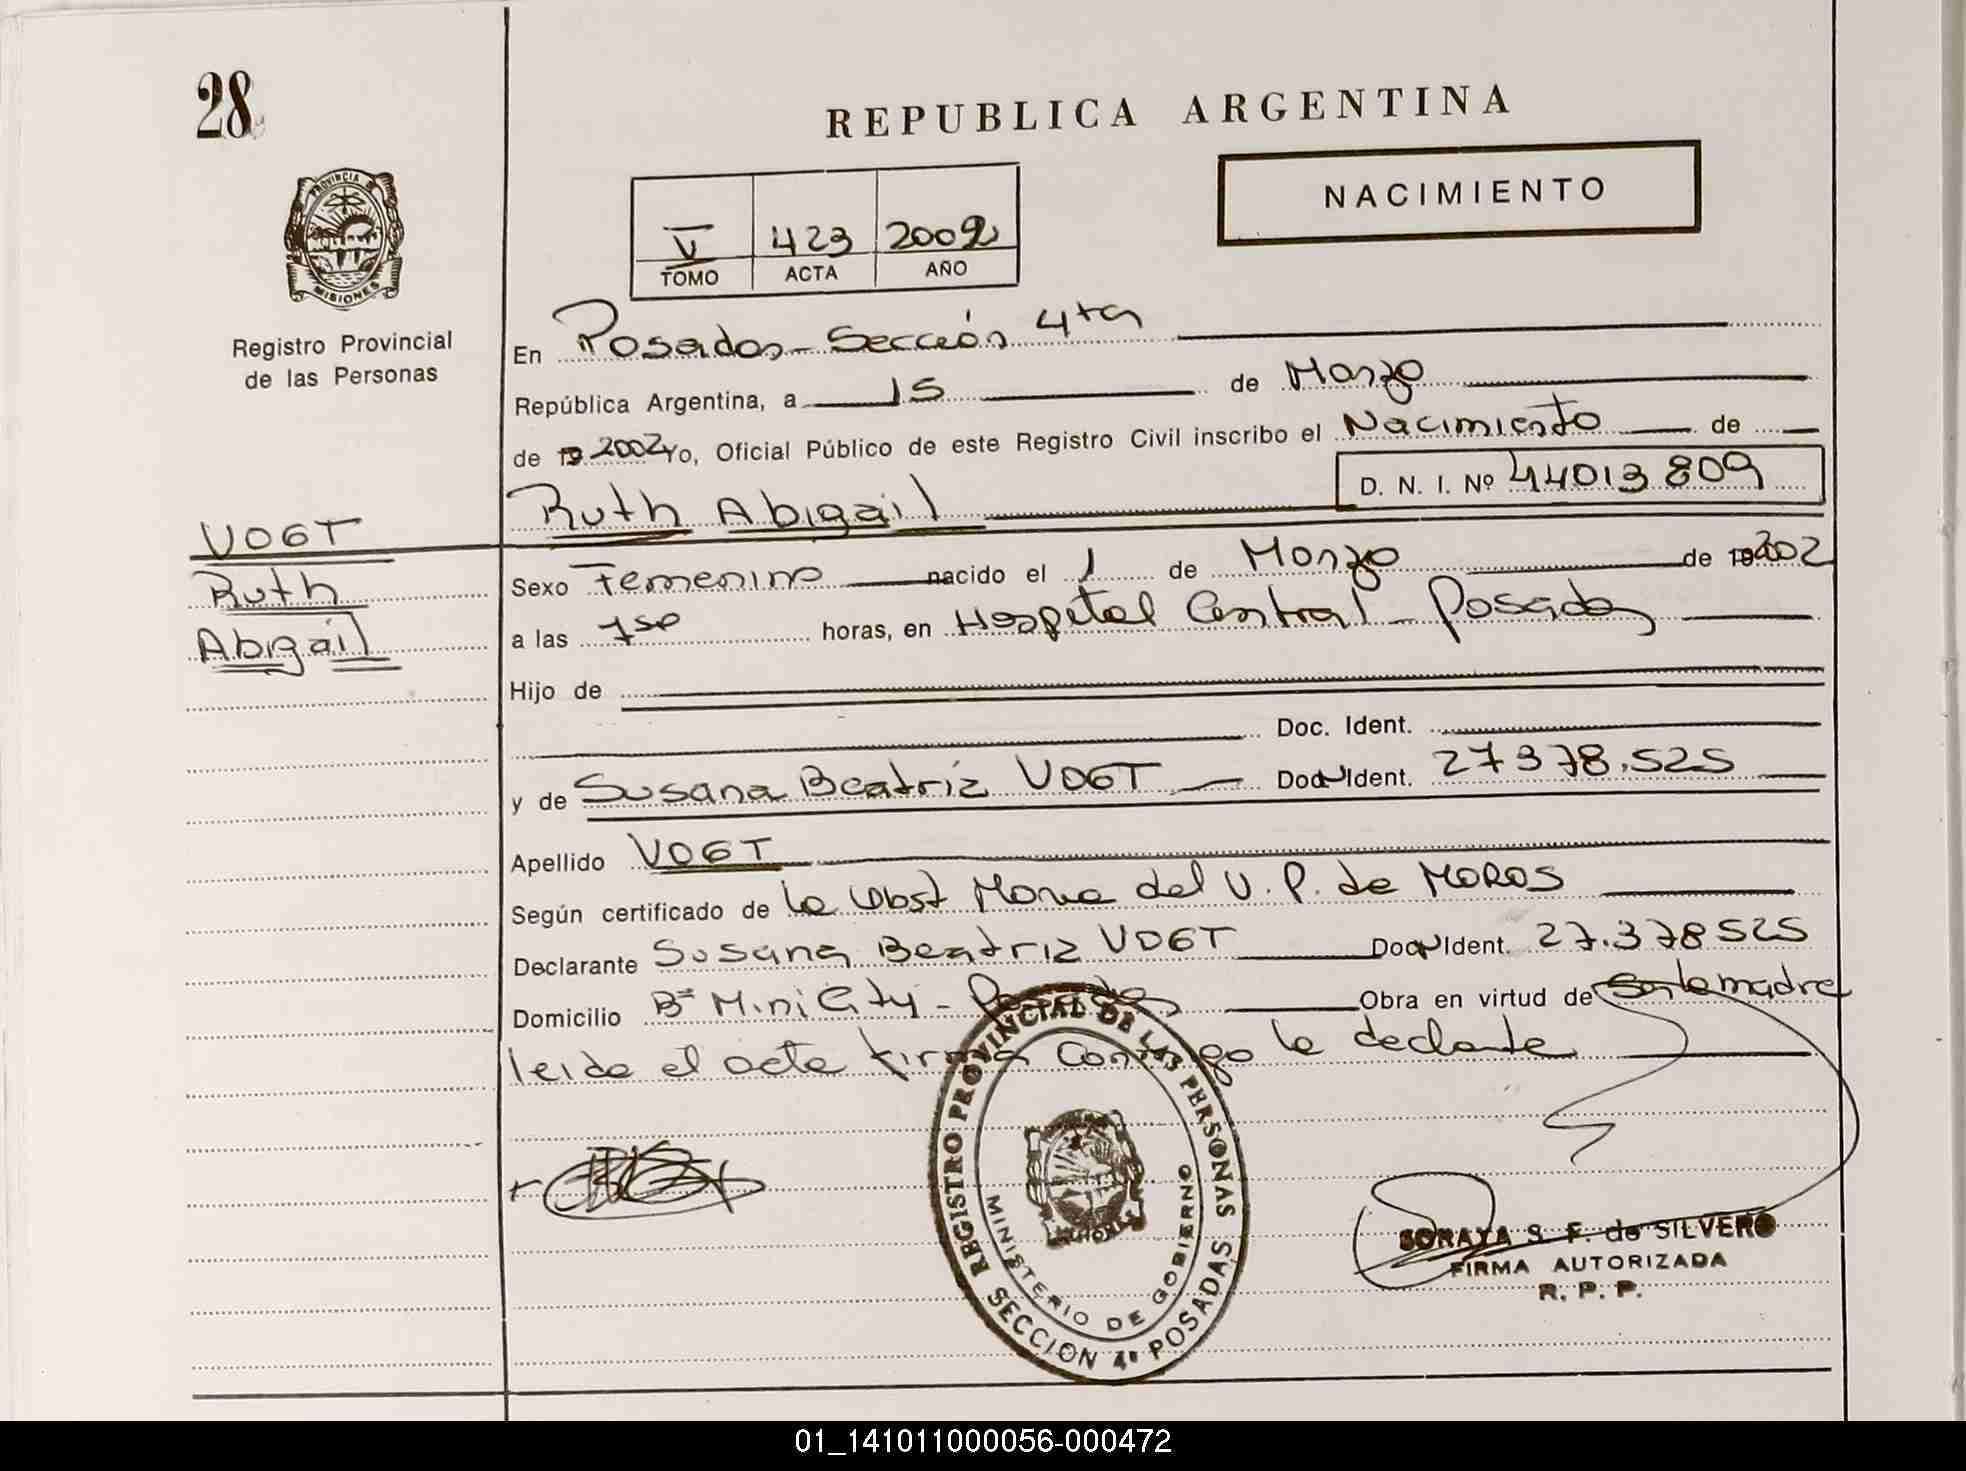 28
REPUBLICA ARGENTINA
NACIMIENTO
PROVINCIA DE
MISIONES
V 423 2002
TOMO ACTA AÑO
Registro Provincial
de las Personas
En Posadas - Sección 4ta
República Argentina, a 15 de Marzo
de 19 2002 Yo, Oficial Público de este Registro Civil inscribo el Nacimiento de
D. N. I. Nº 44013809
Ruth Abigail
VOGT
Ruth
Abigail
Sexo Femenino nacido el 1 de Marzo de 19 2002
a las 7 50 horas, en Hospital Central - Posadas
Hijo de
Doc. Ident.
y de Susana Beatriz VOGT Doc. Ident. 27378.525
Apellido VOGT
Según certificado de la Obst del V. P. de MOROS
Declarante Susana Beatriz VOGT Doc. Ident. 27.378525
Domicilio Bº Mini City - Posadas Obra en virtud de ser la madre
leida el acta firma conmigo la
REGISTRO PROVINCIAL DE LAS PERSONAS
MINISTERIO DE GOBIERNO
SECCION 4ª POSADAS
SORAYA S. F. de SILVERO
FIRMA AUTORIZADA
R. P. P.
01_141011000056-000472